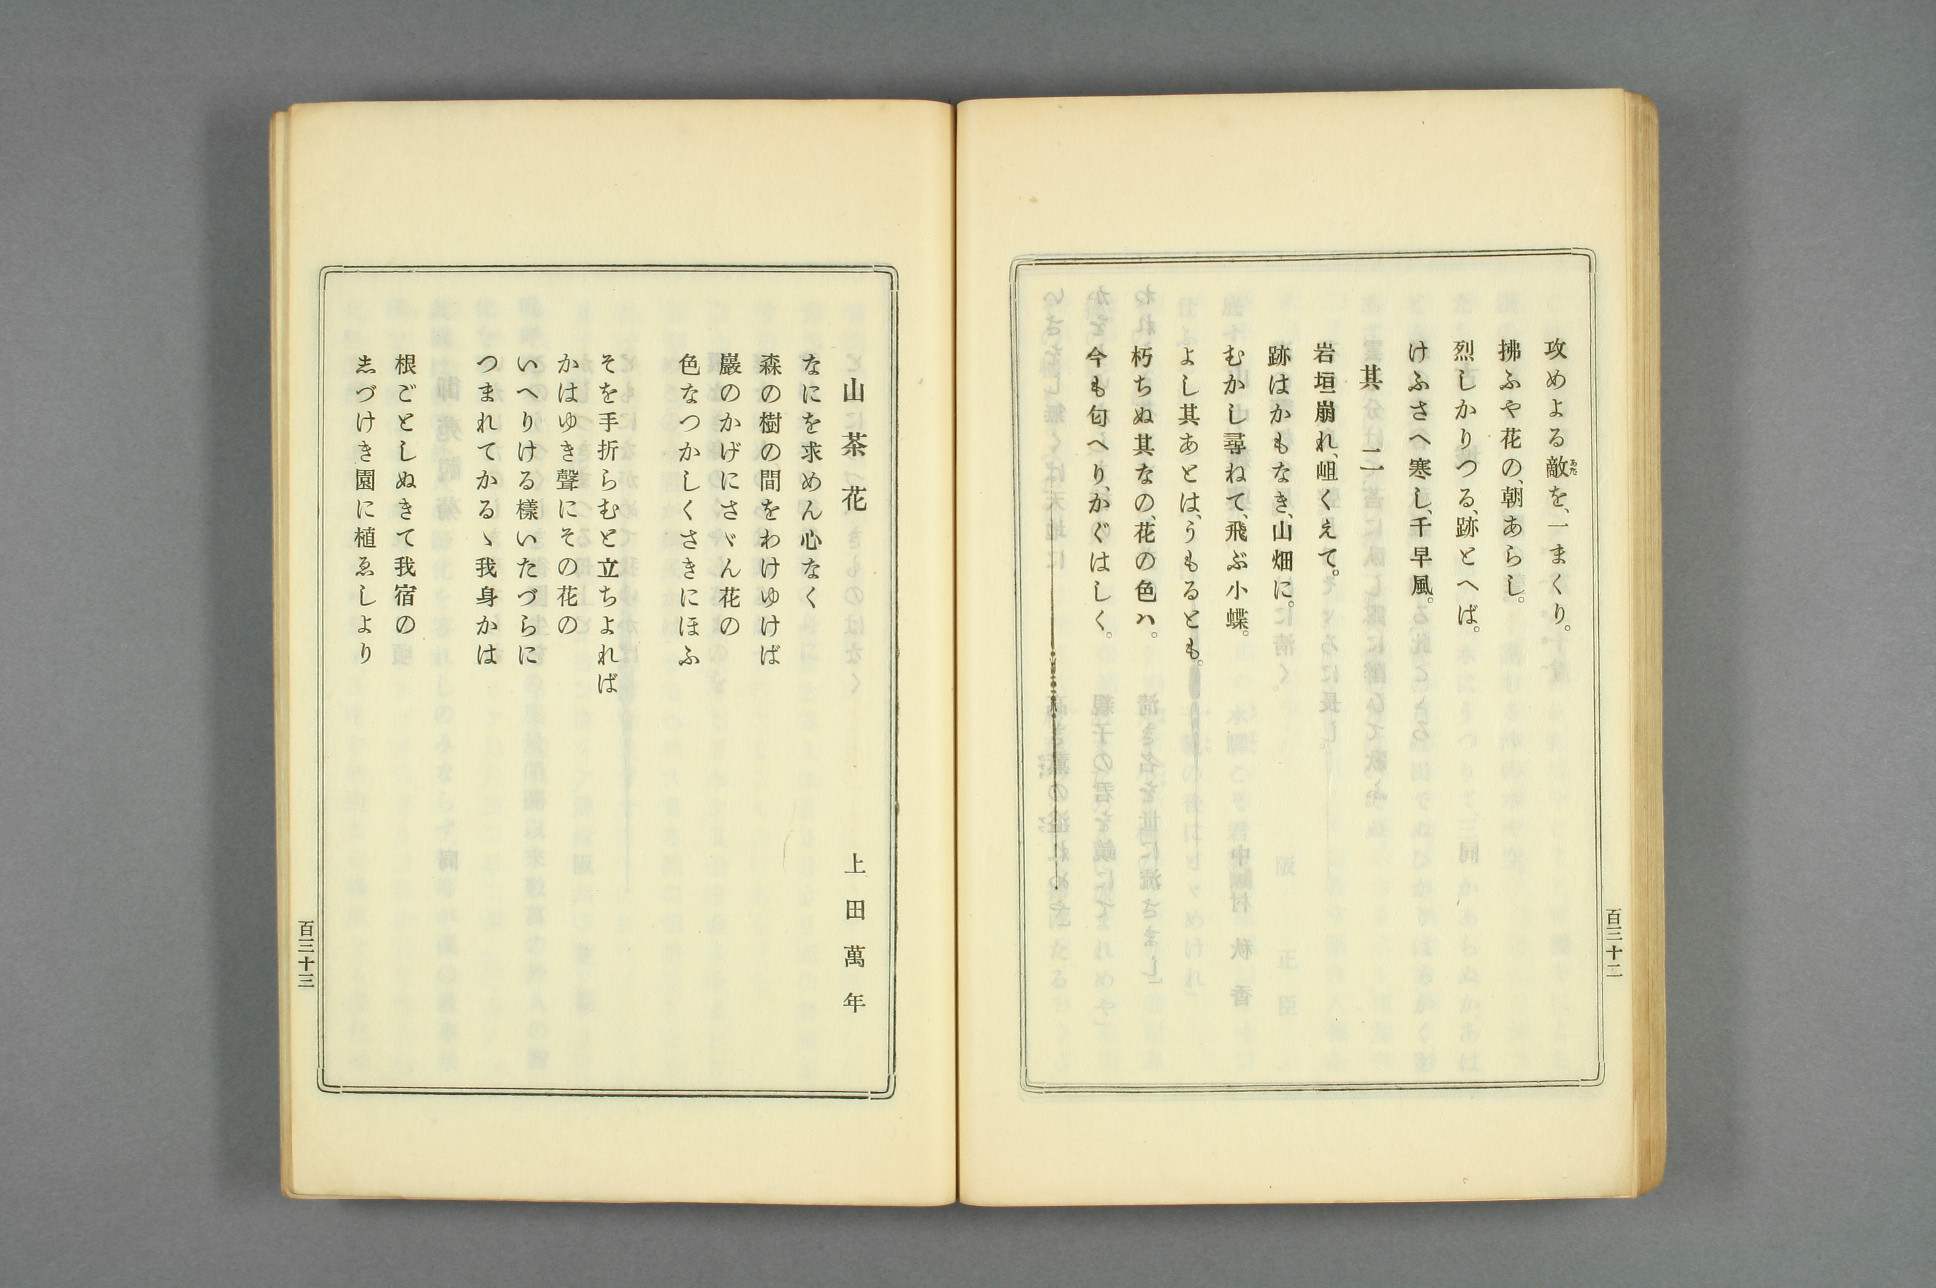 攻めよる敵を、一まくり。
あだ
拂ふや花の、朝あらし。
烈しかりつる、跡とへば。
けふさへ寒し、千早風。
其二
岩垣崩れ、岨くえて。
跡はかもなき、山畑に。
むかし尋ねて、飛ぶ小蝶。
よし其あとは、うもるとも。
朽ちぬ其なの、花の色ハ。
今も匂へり、かぐはしく。
百三十二
山茶花
上田萬年
なにを求めん心なく
森の樹の間をわけゆけば
巖のかげにさゞん花の
色なつかしくさきにほふ
そを手折らむと立ちよれば
かはゆき聲にその花の
いへりける樣いたづらに
つまれてかるゝ我身かは
根ごとしぬきて我宿の
志づけき園に植ゑしより
百三十三